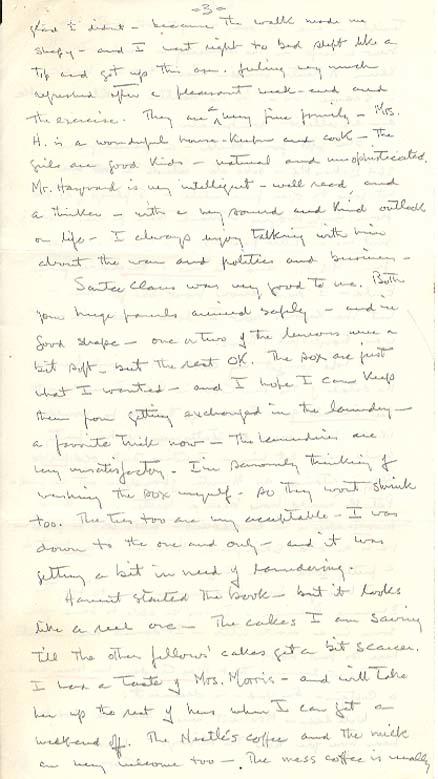 -3-
glad I didn't - because the walk made me
sleepy - and I went right to bed slept like a
top and got up this a.m. feeling very much
refreshed after a pleasant week-end and
the exercise. They are a very fine family - Mrs.
H. is a wonderful house-keeper and cook - The
girls are good kids - natural and unsophisticated.
Mr. Hayward is very intelligent - well read, and
a thinker - with a very sound and kind outlook
on life - I always enjoy talking with him
about the war and politics and business -
Santa Claus was very good to me. Both
your huge parcels arrived safely - and in
good shape - one or two of the lemons were a
bit soft - but the rest OK. The sox are just
what I wanted - and I hope I can keep
them from getting exchanged in the laundry -
a favorite trick now - The laundries are
very unsatisfactory. I'm seriously thinking of
washing the sox myself - so they wont shrink
too. The ties too are very acceptable - I was
down to the one and only - and it was
getting a bit in need of laundering.
Havent started the book - but it looks
like a real one - The cakes I am saving
'till the other fellows' cakes get a bit scarcer.
I had a taste of Mrs. Morris - and will take
her up the rest of hers when I can get a
weekend off. The Nestle's coffee and the milk
are very welcome too - The mess coffee is really